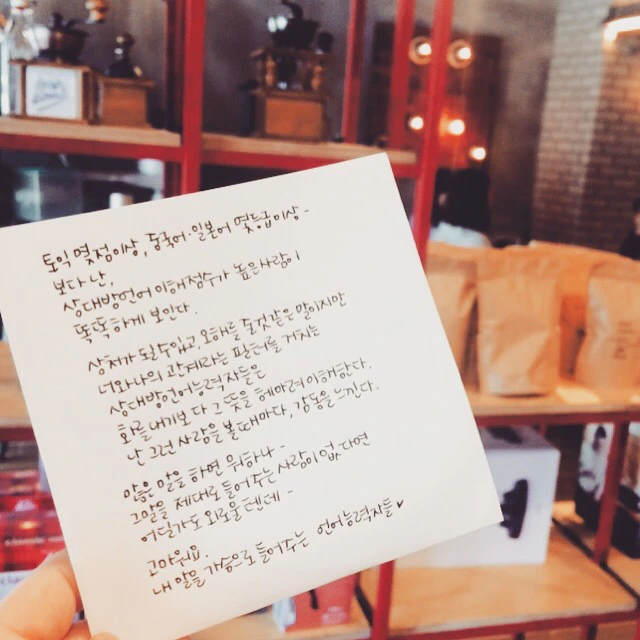 토익 몇점이상, 중국어·일본어 몇등급이상-
보다 난,
상대방언어 이해점수가 높은사람이
똑똑하게 보인다.
상처가 될수있고, 오해를 줄것같은 말이지만
너와나의 관계라는 필터를 거치는
상대방언어능력자들은
화를내기보다 그 뜻을 헤아려 이해한다.
난 그런 사람을 볼때마다, 감동을 느낀다.
많은 말을 하면 뭐하나-
그말을 제대로 들어주는 사람이 없다면
어딜가도 외로울텐데-
고마워요.
내 말을 가슴으로 들어주는 언어능력자들♥